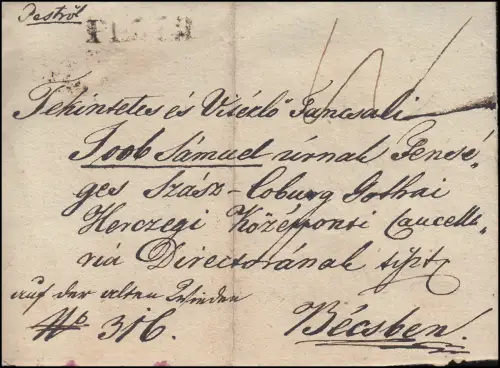 Pestről
PESTH
Tekintetes és Vitézlő Fancsali
Joob Sámuel úrnak Fensé-
ges Szász-Coburg Gothai
Herczegi Középponti Cancella-
ria Directorának tiszt.
auf der alten Wieden
No 316.
Bécsben.